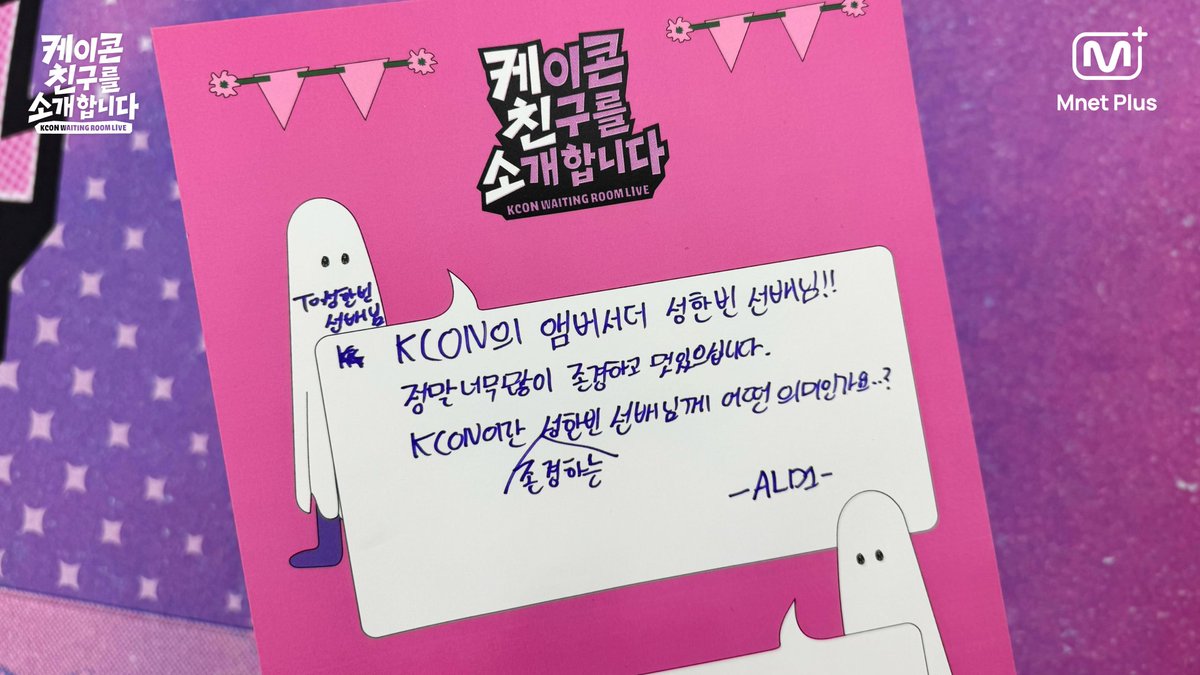 케이콘
친구를
소개합니다
KCON WAITING ROOM LIVE
M+
Mnet Plus
케이콘
친구를
소개합니다
KCON WAITING ROOM LIVE
To성한빈
선배님
KCON의 앰버서더 성한빈 선배님!!
정말 너무 많이 존경하고 멋있으십니다.
KCON이란 성한빈 선배님께 어떤 의미인가요..?
존경하는
-ALD1-